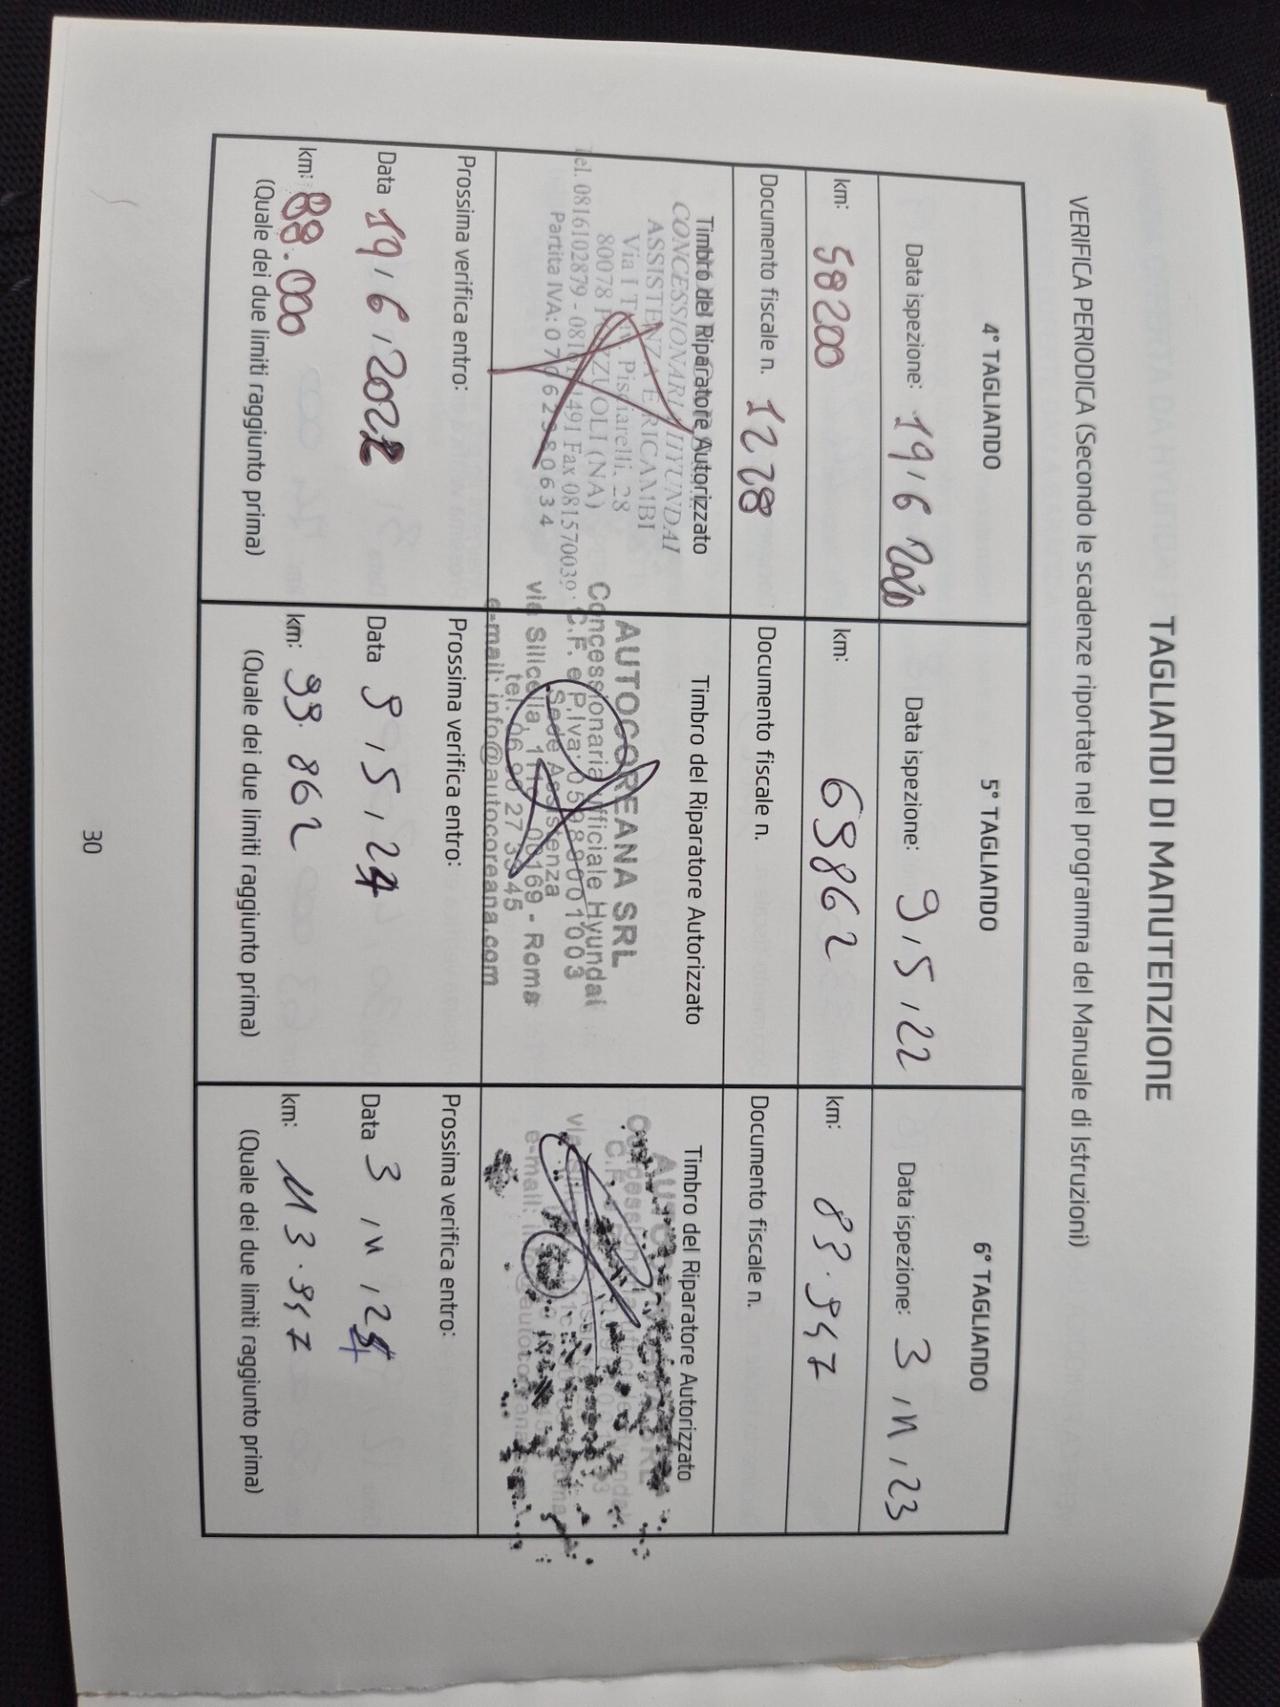 TAGLIANDI DI MANUTENZIONE
VERIFICA PERIODICA (Secondo le scadenze riportate nel programma del Manuale di Istruzioni)
4° TAGLIANDO
Data ispezione: 19/6 2020
km: 58200
Documento fiscale n. 1228
Timbro del Riparatore Autorizzato
CONCESSIONARIA HYUNDAI
ASSISTENZA E RICAMBI
Via I Trav. Pisciarelli, 28
80078 POZZUOLI (NA)
Tel. 0816102879 - 081 1491 Fax 081570039
Partita IVA: 0 6 2 9 8 0 6 3 4
Prossima verifica entro:
Data 19/6/2022
km: 88.000
(Quale dei due limiti raggiunto prima)
5° TAGLIANDO
Data ispezione: 9/5/22
km: 69862
Documento fiscale n.
Timbro del Riparatore Autorizzato
AUTOCOREANA SRL
Concessionaria Ufficiale Hyundai
C.F. e P.Iva: 05989001003
Sede Assistenza
via Silicella, 111 00169 - Roma
tel. 06 27 45
e-mail: info@autocoreana.com
Prossima verifica entro:
Data 9/5/24
km: 99.862
(Quale dei due limiti raggiunto prima)
6° TAGLIANDO
Data ispezione: 3/11/23
km: 83.947
Documento fiscale n.
Timbro del Riparatore Autorizzato
Prossima verifica entro:
Data 3/11/24
km: 113.947
(Quale dei due limiti raggiunto prima)
30